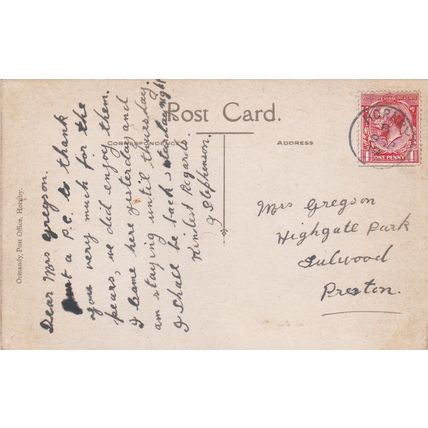 Post Card.
CORRESPONDENCE
ADDRESS
Dear Mrs Gregson.
Just a P.C. to thank
you very much for the
pears, we did enjoy them.
I came here yesterday and
am staying until thursday.
I shall be back saturday night
Kindest Regards.
J Stephenson.
Mrs Gregson
Highgate Park
Fulwood
Preston.
Ormandy, Post Office, Hornby.
HORNBY
ONE PENNY
1
1